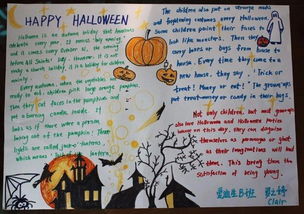 HAPPY HALLOWEEN
Hallowmas is an autumn holiday that Americans
celebrate every year. It means holy evening
and it comes every October 31, the evening
before All Saints' Day. However, it is not
really a church holiday, it is a holiday for children
mainly.
Every autumn, when the vegetables are
ready to eat, children pick large orange pumpkins.
Then they cut faces in the pumpkins and
put a burning candle inside. It
looks as if there were a person
looking out of the pumpkin! These
lights are called jack-o'-lanterns
which means
The children also put on strange masks
and frightening costumes every Halloween.
Some children paint their faces to
look like monsters. Then they
carry boxes or bags from house to
house. Every time they come to a
new house, they say, "Trick or
treat! Money or eat!" The grown-up
put treat-money or candy in their bags.
Not only children, but most grown-ups
also love Halloween and Halloween parties
because on this day, they can disguise
themselves as personages or ghost
as their imaginations will lead
them. This bring them the
satisfaction of being young.
Clair